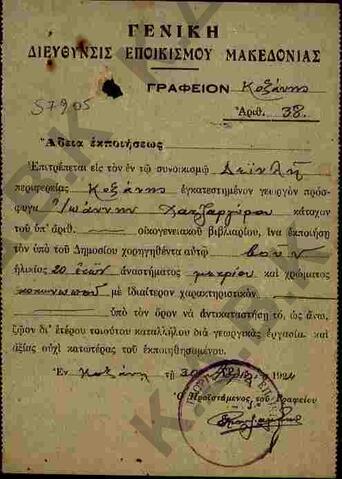 ΓΕΝΙΚΗ
ΔΙΕΥΘΥΝΣΙΣ ΕΠΟΙΚΙΣΜΟΥ ΜΑΚΕΔΟΝΙΑΣ
ΓΡΑΦΕΙΟΝ Κοζάνης
57905
Ἀριθ. 38
Ἄδεια ἐκποιήσεως
Ἐπιτρέπεται εἰς τὸν ἐν τῷ συνοικισμῷ
περιφερείας Κοζάνης ἐγκατεστημένον γεωργὸν πρόσ-
φυγα Ἰωάννην Χατζαργύρου κάτοχον
τοῦ ὑπ' ἀριθ. οἰκογενειακοῦ βιβλιαρίου, ἵνα ἐκποιήσῃ
τὸν ὑπὸ τοῦ Δημοσίου χορηγηθέντα αὐτῷ βοῦν
ἡλικίας 20 ἐτῶν ἀναστήματος μετρίου καὶ χρώματος
κοκινωποῦ μὲ ἰδιαίτερον χαρακτηριστικὸν
ὑπὸ τὸν ὅρον νὰ ἀντικαταστήσῃ τό, ὡς ἄνω,
ζῷον δι' ἑτέρου τοιούτου καταλλήλου διὰ γεωργικὰς ἐργασία- καὶ
ἀξίας οὐχὶ κατωτέρας τοῦ ἐκποιηθησομένου.
Ἐν Κοζάνῃ τῇ 30 1924
Ὁ Προϊστάμενος τοῦ Γραφείου